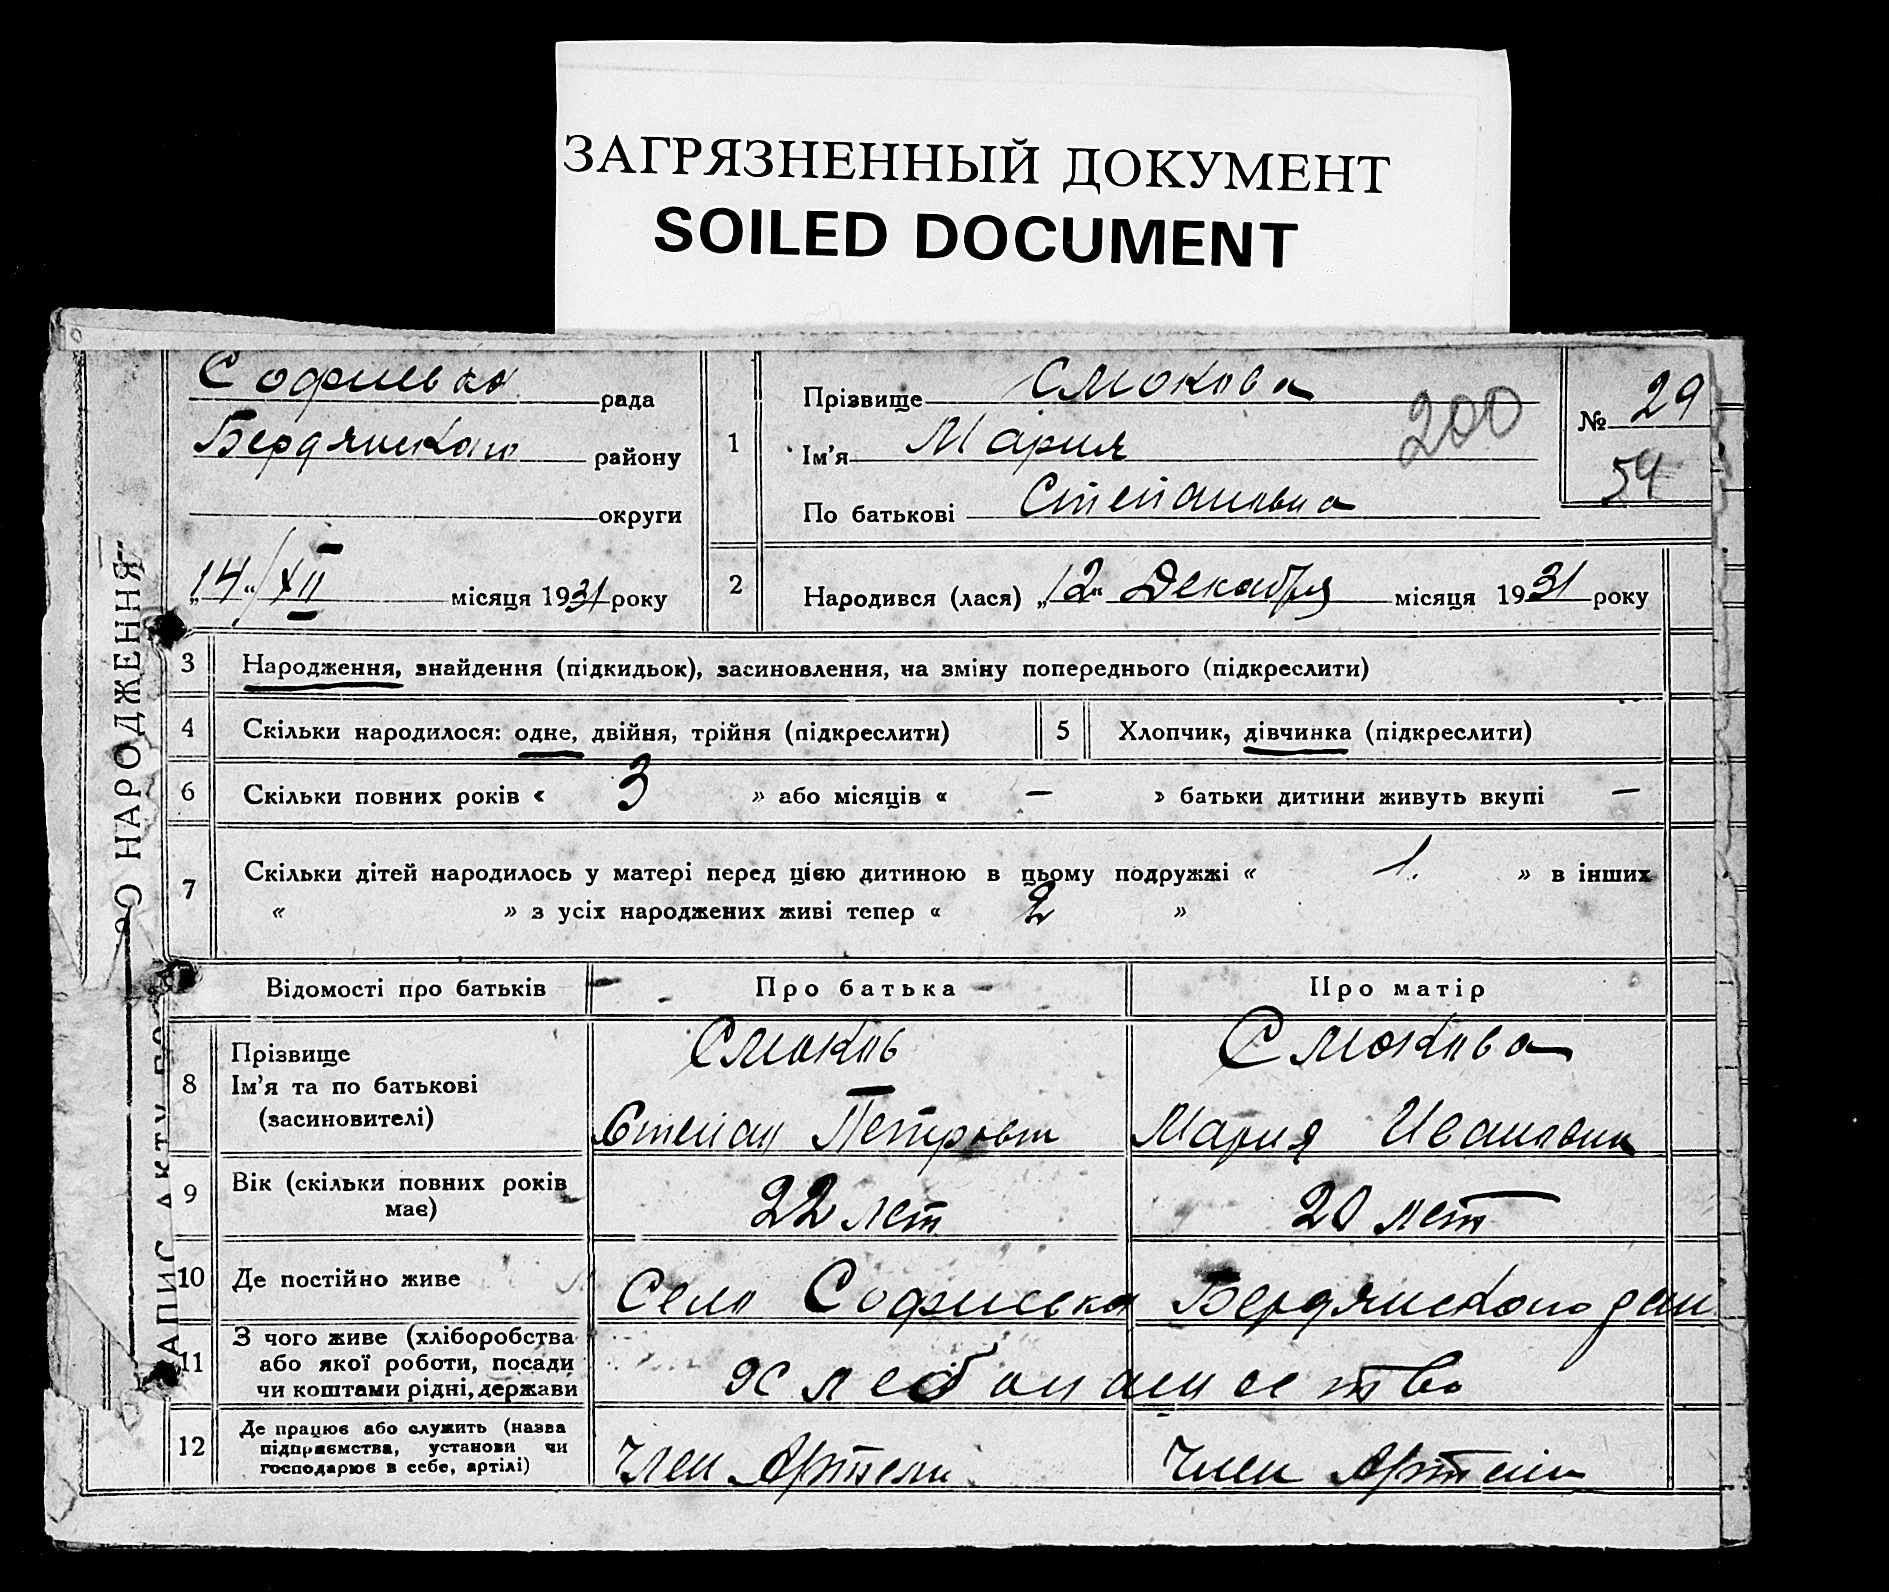 ЗАГРЯЗНЕННЫЙ ДОКУМЕНТ
SOILED DOCUMENT
рада
Бердянского району
округи
„14“/XII місяця 1931 року
1
Прізвище Смокова
Ім’я Мария
По батькові Степановна
200
№ 29
54
2
Народився (лася) „12“ Декабря місяця 1931 року
3 Народження, знайдення (підкидьок), засиновлення, на зміну попереднього (підкреслити)
4 Скільки народилося: одне, двійня, трійня (підкреслити) 5 Хлопчик, дівчинка (підкреслити)
6 Скільки повних років « 3 » або місяців « — » батьки дитини живуть вкупі —
7 Скільки дітей народилось у матері перед цією дитиною в цьому подружжі « 1. » в інших
« » з усіх народжених живі тепер « 2 »
Відомості про батьків Про батька Про матір
8
Прізвище Смоков Смокова
Ім’я та по батькові
(засиновителі) Степан Петрович Мария Ивановна
9 Вік (скільки повних років має) 22 лет 20 лет
10 Де постійно живе Село Бердянского
11 З чого живе (хліборобства
або якої роботи, посади
чи коштами рідні, держави хлебопашество
12 Де працює або служить (назва
підприємства, установи чи
господарює в себе, артілі) Член Артели Член Артели
О НАРОДЖЕННЯ